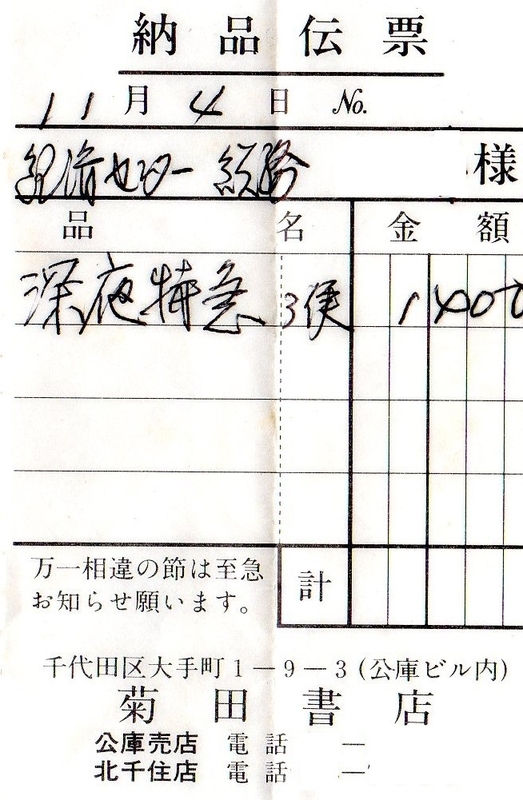 納品伝票
11月4日 No.
経済センター 総務 様
品名 金額
深夜特急 3便 1400
万一相違の節は至急
お知らせ願います。
計
千代田区大手町1―9―3(公庫ビル内)
菊田書店
公庫売店 電話 ―
北千住店 電話 ―